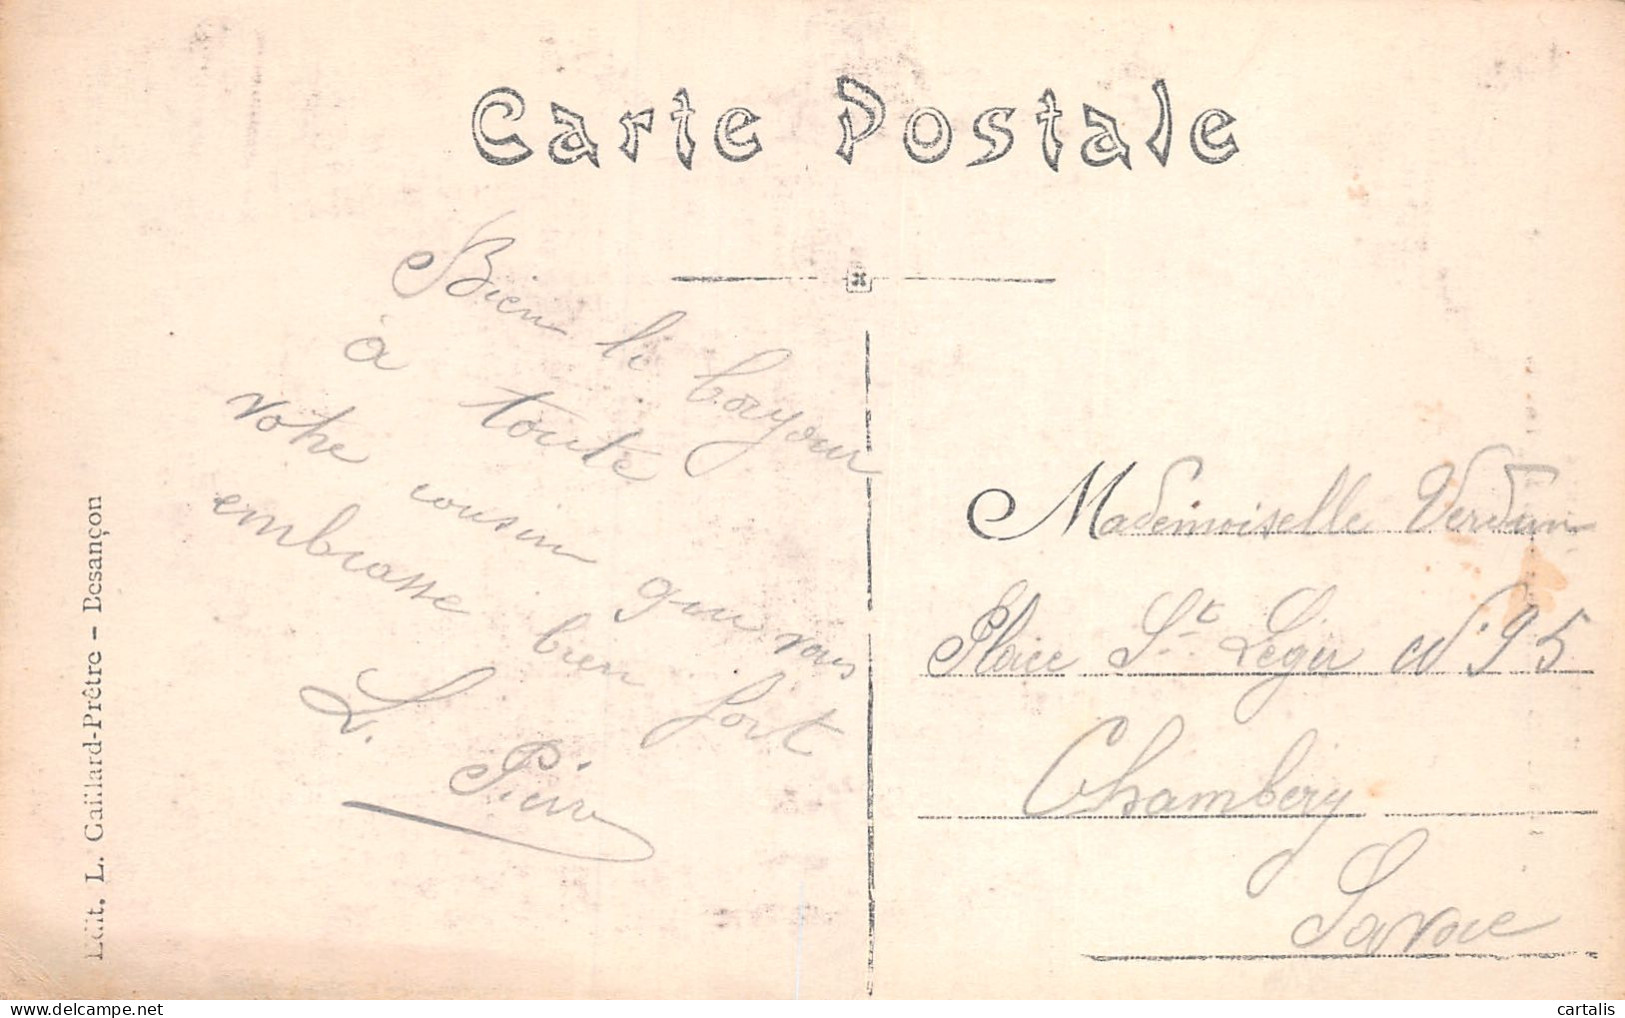 Carte Postale
Bien le bonjour
à toute
votre cousin qui vous
embrasse bien fort
L. Pierre
Mademoiselle Verdun
Place St Léger N° 95
Chambery
Savoie
Edit. L. Gaillard-Prêtre - Besançon
cartalis